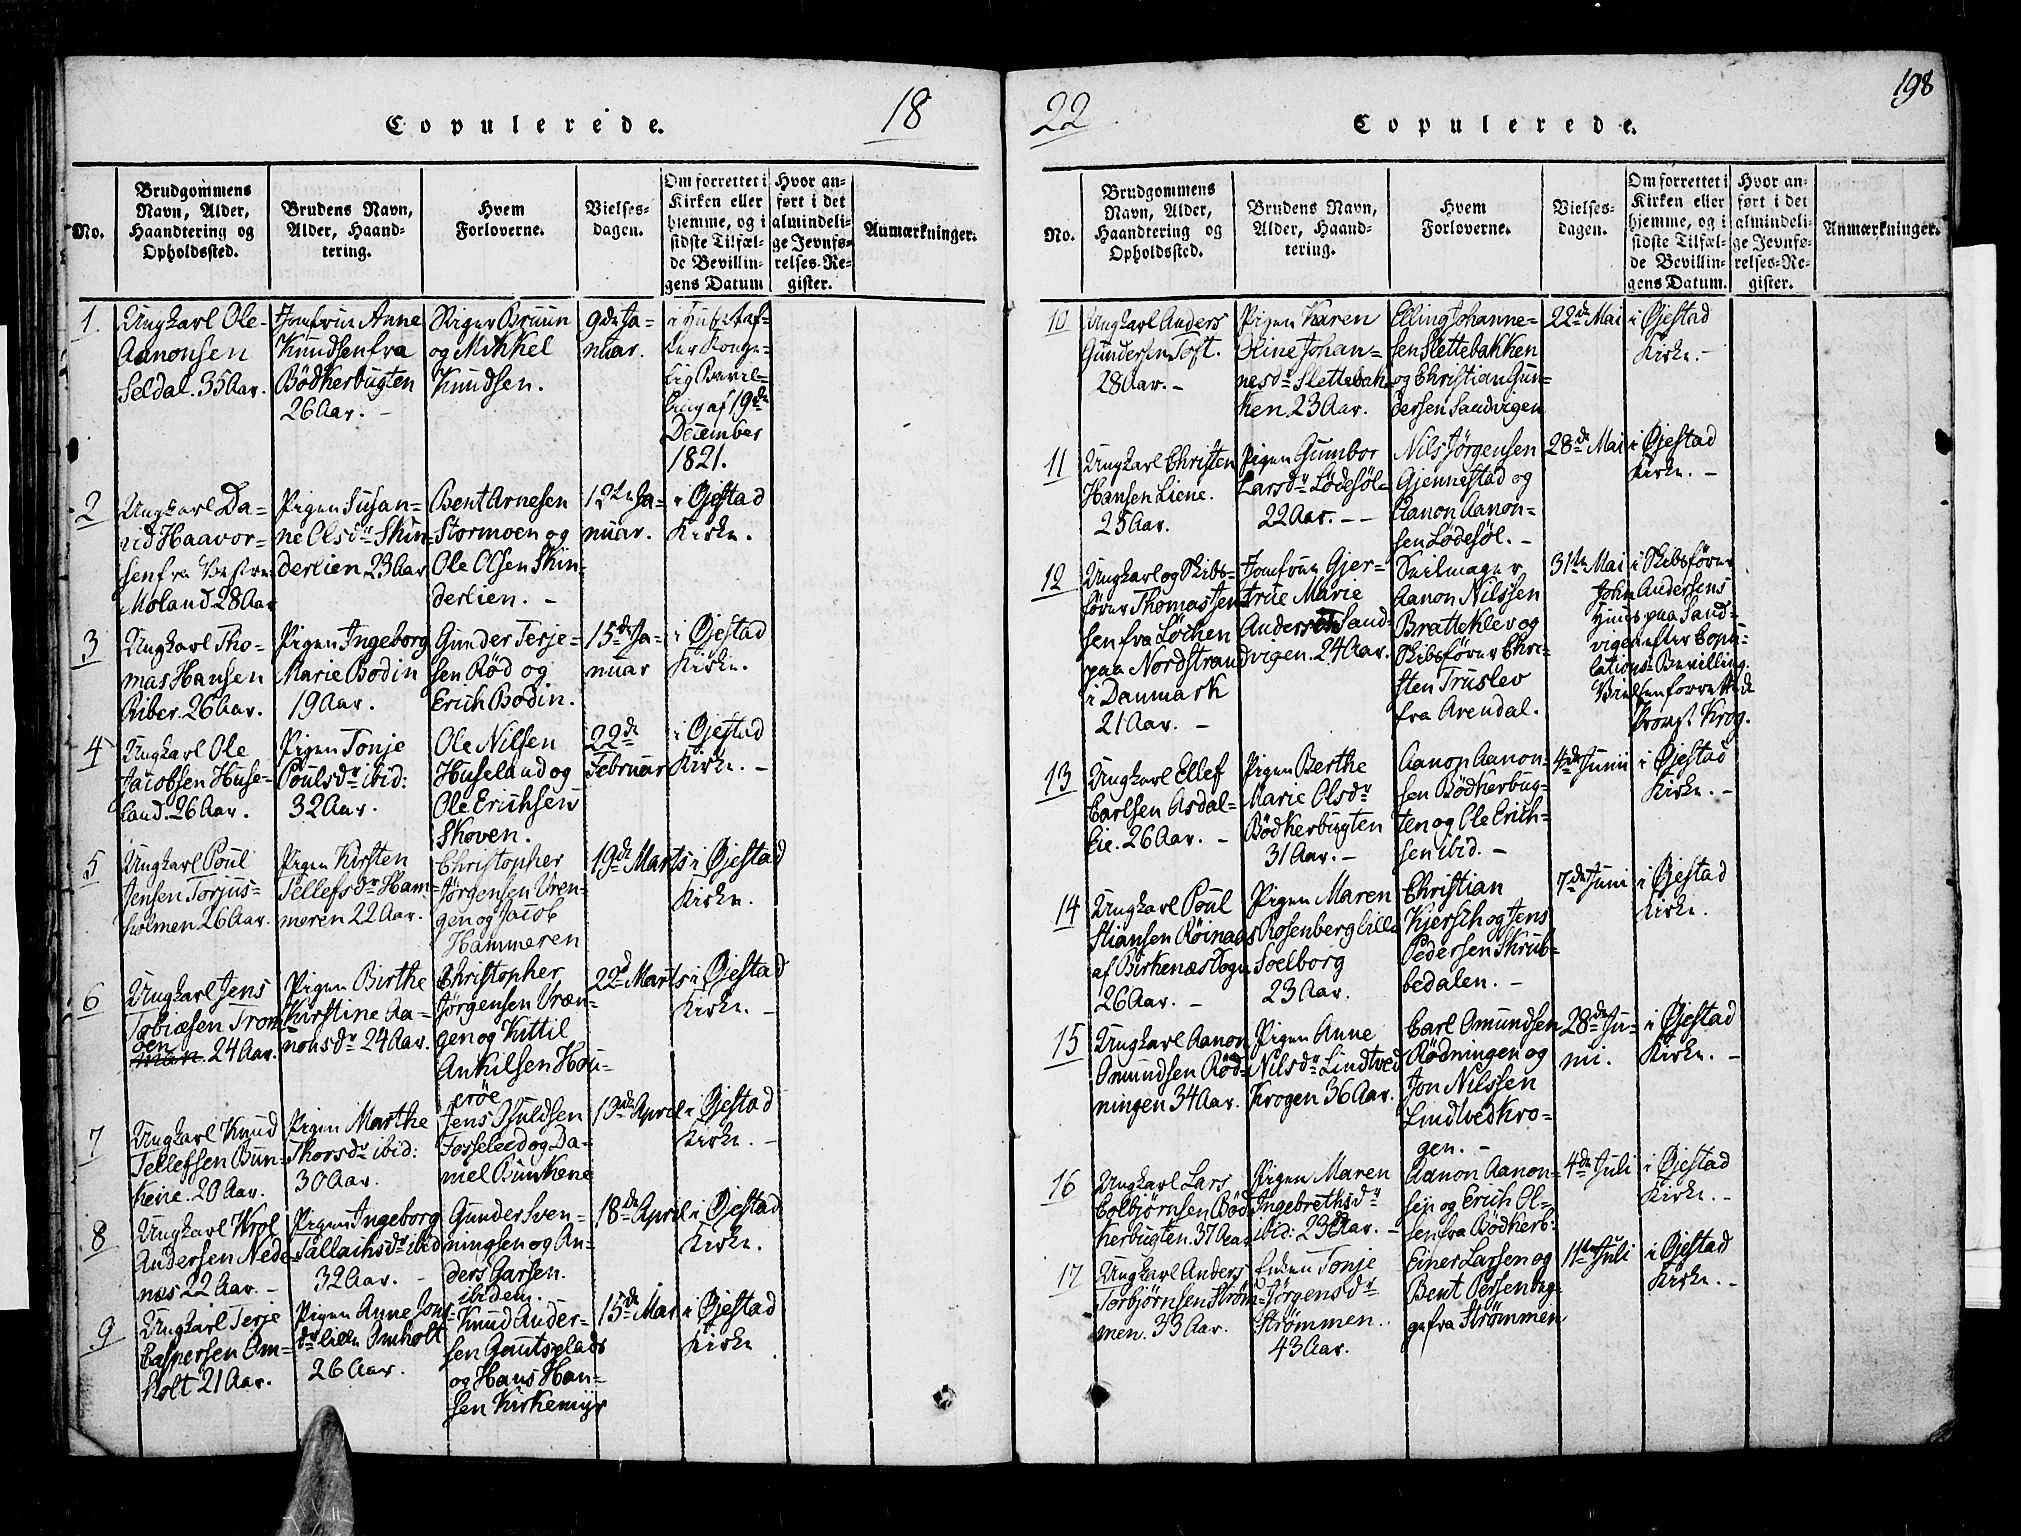 Copulerede.
18
No.
Brudgommens
Navn, Alder,
Haandtering og
Opholdssted.
Brudens Navn,
Alder, Haand-
tering.
Hvem
Forloverne.
Vielses-
dagen.
Om forrettet i
Kirken eller
hjemme, og i
sidste Tilfæl-
de Bevillin-
gens Datum
Hvor an-
ført i det
almindeli-
ge Jevnfø-
relses-Re-
gister.
Anmærkninger.
1.
Ungkarl Ole
Aanonsen
Seldal. 35 Aar.
Jomfrue Anne
Knudsen fra
Bödkerbugten
26 Aar. -
Niger Bruun
og Mikkel
Knudsen.
9de Ja-
nuar.
i Huset ef-
ter Konge-
lig Bevil-
ling af 19de
December
1821.
2
Ungkarl Da-
vid Haavor-
sen fra Vestre
Moland 28 Aar
Pigen Susan-
ne Olsdr Skin-
derlien 23 Aar
Bent Arnesen
Stormoen og
Ole Olsen Skin-
derlien. -
12te Ja-
nuar.
i Øjestad
Kirke.
3
Ungkarl Tho-
mas Hansen
Riber. 26 Aar.
Pigen Ingeborg
Marie Bodin
19 Aar.
Gunder Terje-
sen Röd og
Erich Bodin.
15de Ja-
nuar
i Øjestad
Kirke.
4
Ungkarl Ole
Jacobsen Huse-
land. 26 Aar.
Pigen Tonje
Poulsdr ibid:
32 Aar.
Ole Nilsen
Huseland og
Ole Erichsen
Skoven.
22de
Februar
i Øjestad
Kirke. -
5
Ungkarl Poul
Jensen Torjus-
holmen 26 Aar.
Pigen Kirsten
Tellefsdr Ham-
meren 22 Aar.
Christopher
Jørgensen Vren-
gen og Jacob
Hammeren
19de Marts
i Øjestad
Kirke.
6
Ungkarl Jens
Tobiæsen Trom-
öen 24 Aar.
Pigen Birthe
Kirstine Aa-
nonsdr 24 Aar.
Christopher
Jørgensen Vræn-
gen og Kittil
Ankilsen Hou-
eröe
22d Marts
i Øjestad
Kirke. -
7
Ungkarl Knud
Tellefsen Bun-
keie. 20 Aar.
Pigen Marthe
Thorsdr ibid:
30 Aar.
Jens
Fosseleed og Da-
niel Bunkene
19de April
i Øjestad
Kirke. -
8
Ungkarl Krol
Andersen Nede-
næs 22 Aar. -
Pigen Ingeborg
Tallachsdr ibid
32 Aar. -
Gunder Sven-
ningsen og An-
ders Garsen
ibidem.
18de April
i Øjestad
Kirke.
9
Ungkarl Terje
Caspersen Om-
holt 21 Aar.
Pigen Anne Jons-
dr lille Omholt
26 Aar.
Knud Ander-
sen Gautsplads
og Hans Han-
sen Kirkemyr
15de Mai
i Øjestad
Kirke
22
Copulerede.
198
No.
Brudgommens
Navn, Alder,
Haandtering og
Opholdssted.
Brudens Navn,
Alder, Haand-
tering.
Hvem
Forloverne.
Vielses-
dagen.
Om forrettet i
Kirken eller
hjemme, og i
sidste Tilfæl-
de Bevillin-
gens Datum.
Hvor an-
ført i det
almindeli-
ge Jevnfø-
relses-Re-
gister.
Anmærkninger.
10
Ungkarl Anders
Gundersen Toft.
28 Aar. -
Pigen Karen
Oline Johan-
nesdr Slettebak-
ken. 23 Aar.
Elling Johanne-
sen Slettebakken
og Christian Gun-
dersen Sandvigen
22de Mai
i Øjestad
Kirke. -
11
Ungkarl Christen
Hansen Liene.
25 Aar.
Pigen Gumbor
Larsdr Lødesøl-
22 Aar. - -
Nils Jörgensen
Gjennestad og
Aanon Aanon-
sen Lødesøl. -
28de Mai
i Øjestad
Kirke. -
12
Ungkarl og Skibs-
fører Thomas Jen-
sen fra Löchen
paa Nordstrand
i Danmark
21 Aar. -
Jomfrue Gjer-
true Marie
Andersen Sand-
vigen. 24 Aar.
Seilmager
Aanon Nilssen
Bratteklev og
Skibsfører Chri-
sten Truslev
fra Arendal.
31te Mai
i Skibsfører
John Andersens
Huus paa Sand-
vigen efter Copu-
lations-Bevilling.
Vielsen forrettede
Provst Krog.
13
Ungkarl Ellef
Carlsen Asdal-
Eie. 26 Aar. -
Pigen Berthe
Marie Olsdr
Bödkerbugten
31 Aar. -
Aanon Aanon-
sen Bödkerbug-
ten og Ole Erich-
sen ibid. -
4de Junii
i Øjestad
Kirke. -
14
Ungkarl Poul
Stiansen Röinaas
af Birkenæs Sogn
26 Aar. -
Pigen Maren
Rosenberg lille
Soelborg
23 Aar.
Christian
Kjerslh og Jens
Pedersen Skrub-
bedalen. -
7de Juni
i Øjestad
Kirke.
15
Ungkarl Aanon
Omundsen Röd-
ningen 34 Aar.
Pigen Anne
Nilsdr Lindtved
Krogen 36 Aar.
Carl Omundsen
Rødningen og
Jon Nilssen
Lindtvedkro-
gen. -
28de Ju-
ni.
i Øjestad
Kirke. -
16
Ungkarl Lars
Colbjørnsen Böd-
kerbugten. 37 Aar
Pigen Maren
Ingebrethsdr
ibid: 23 Aar. -
Aanon Aanon-
sen og Erich Ol-
sen fra Bödkerb:
4de Juli
i Øjestad
Kirke. -
17
Ungkarl Anders
Torbjörnsen Ström-
men. 33 Aar.
Enken Tonje
Jörgensdr
Strömmen.
43 Aar.
Einer Larsen og
Bent
fra Strömmen
11te Juli
i Øjestad
Kirke. -